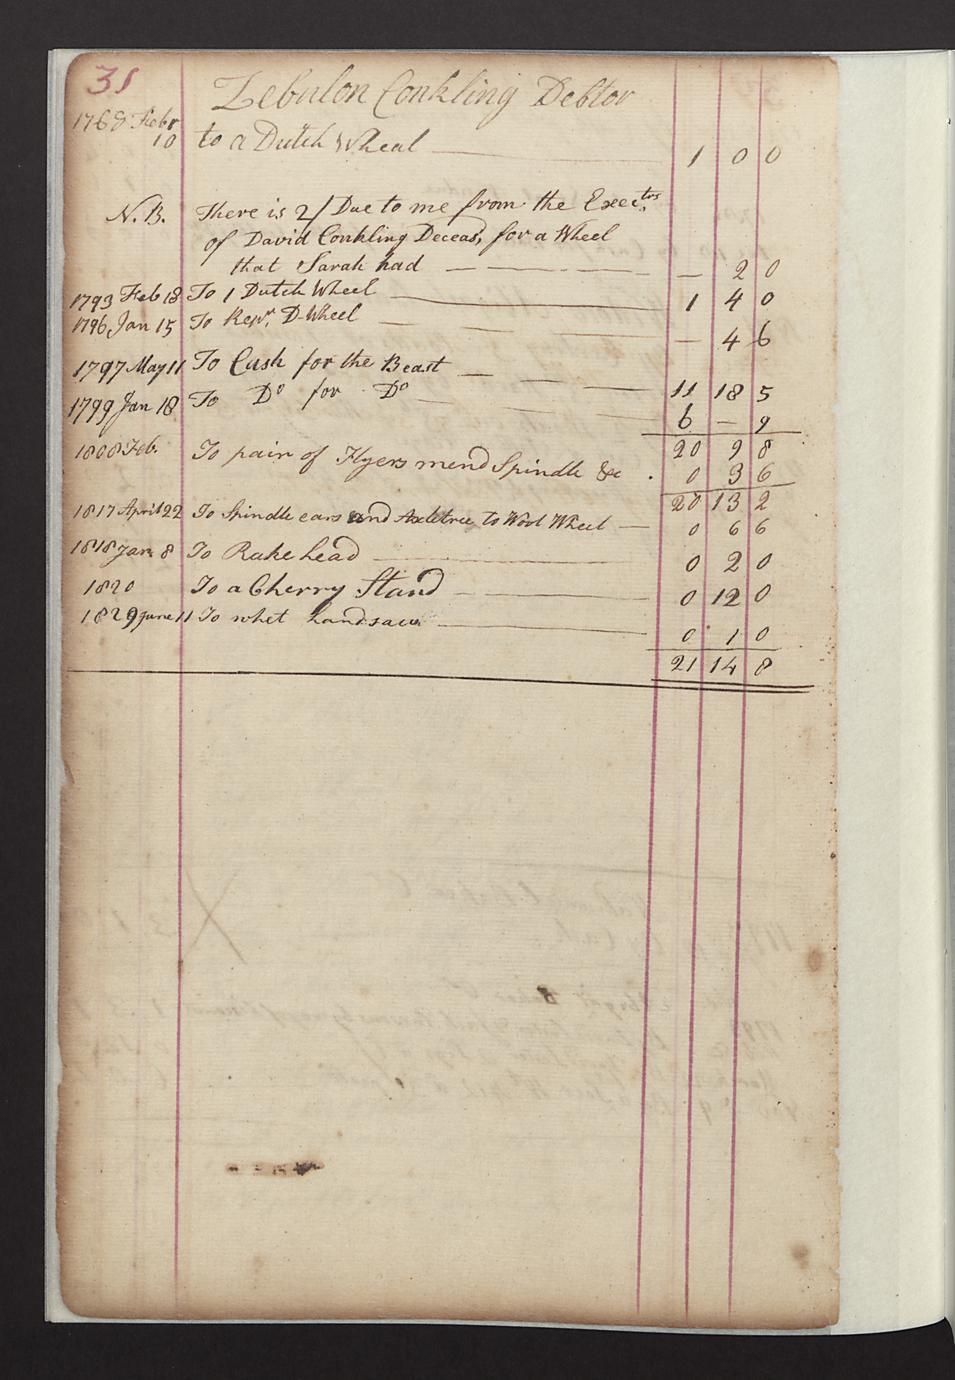 31
Zebulon Conkling Debtor
1768 Febr
10 to a Dutch Wheal — 1 0 0
N.B. There is 2/ Due to me from the Exec.trs
of David Conkling Deceasd, for a Wheel
that Sarah had — — — — — 2 0
1793 Feb 18 To 1 Dutch Wheel — 1 4 0
1796 Jan 15 To Repr. D-Wheel — — 4 6
1797 May 11 To Cash for the Beast — — — 11 18 5
1799 Jan 18 To Do for Do — — 6 — 9
20 9 8
1808 Feb. To pair of Flyers mend Spindle &c . 0 3 6
20 13 2
1817 April 22 To Spindle ears and Axletree to Wool Wheel — 0 6 6
1818 Jan 8 To Rake head — 0 2 0
1820 To a Cherry Stand — 0 12 0
1829 June 11 To whet handsaw — 0 1 0
21 14 8